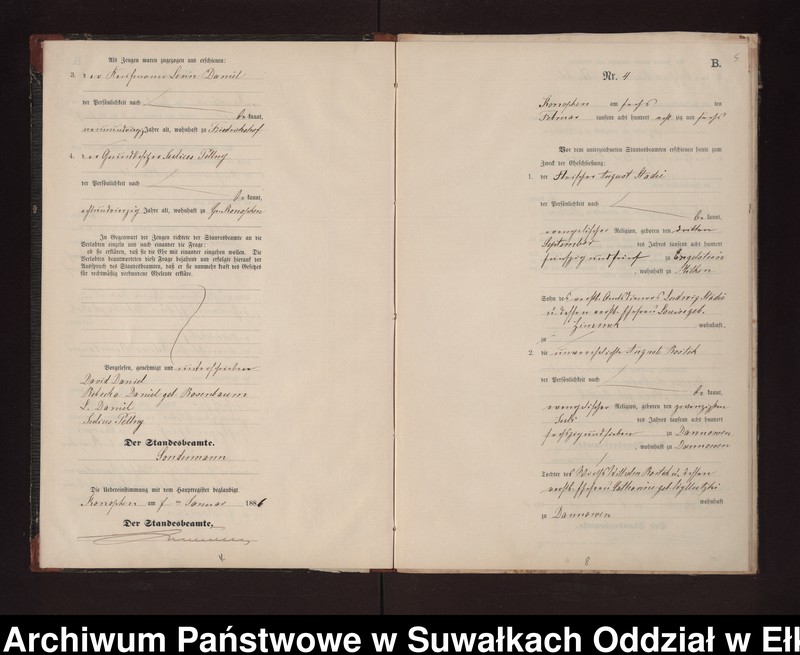 Als Zeugen waren zugezogen und erschienen:
3. der Kaufmann Louis Daniel
der Persönlichkeit nach
be kannt,
Jahre alt, wohnhaft zu Friedrichshof
4. der Grundbesitzer Julius Pëllny
der Persönlichkeit nach
be kannt,
achtundvierzig Jahre alt, wohnhaft zu Gr. Konopken
In Gegenwart der Zeugen richtete der Standesbeamte an die
Verlobten einzeln und nach einander die Frage:
ob sie erklären, daß sie die Ehe mit einander eingehen wollen. Die
Verlobten beantworteten diese Frage bejahend und erfolgte hierauf der
Ausspruch des Standesbeamten, daß er sie nunmehr kraft des Gesetzes
für rechtmäßig verbundene Eheleute erkläre.
Vorgelesen, genehmigt und unterschrieben
David Daniel
Rebecka Daniel geb. Rosenbaum
L. Daniel
Julius Pëllny
Der Standesbeamte.
Sondermann
Die Uebereinstimmung mit dem Hauptregister beglaubigt
Konopken am 7 ten Januar 1886
Der Standesbeamte,
4
5
B.
Nr. 4
Konopken am sechs ten
Februar tausend acht hundert acht zig und sechs
Vor dem unterzeichneten Standesbeamten erschienen heute zum
Zweck der Eheschließung:
1. der August
der Persönlichkeit nach
be kannt,
evangelischer Religion, geboren den dritten
September des Jahres tausend acht hundert
fünfzig und fünf zu
, wohnhaft zu Milken
Sohn des verstb. Amtsdieners Ludwig
u. dessen verstb. Ehefrau Louise geb.
wohnhaft
zu
2. die unverehelichte August
der Persönlichkeit nach
be kannt,
evangelischer Religion, geboren den zwanzigsten
Juli des Jahres tausend acht hundert
sechszig und sieben zu Dannowen
, wohnhaft zu Dannowen
Tochter des Wirths Wilhelm u. dessen
verstb. Ehefrau Katharine geb.
wohnhaft
zu Dannowen
8
Archiwum Państwowe w Suwałkach Oddział w Ełk